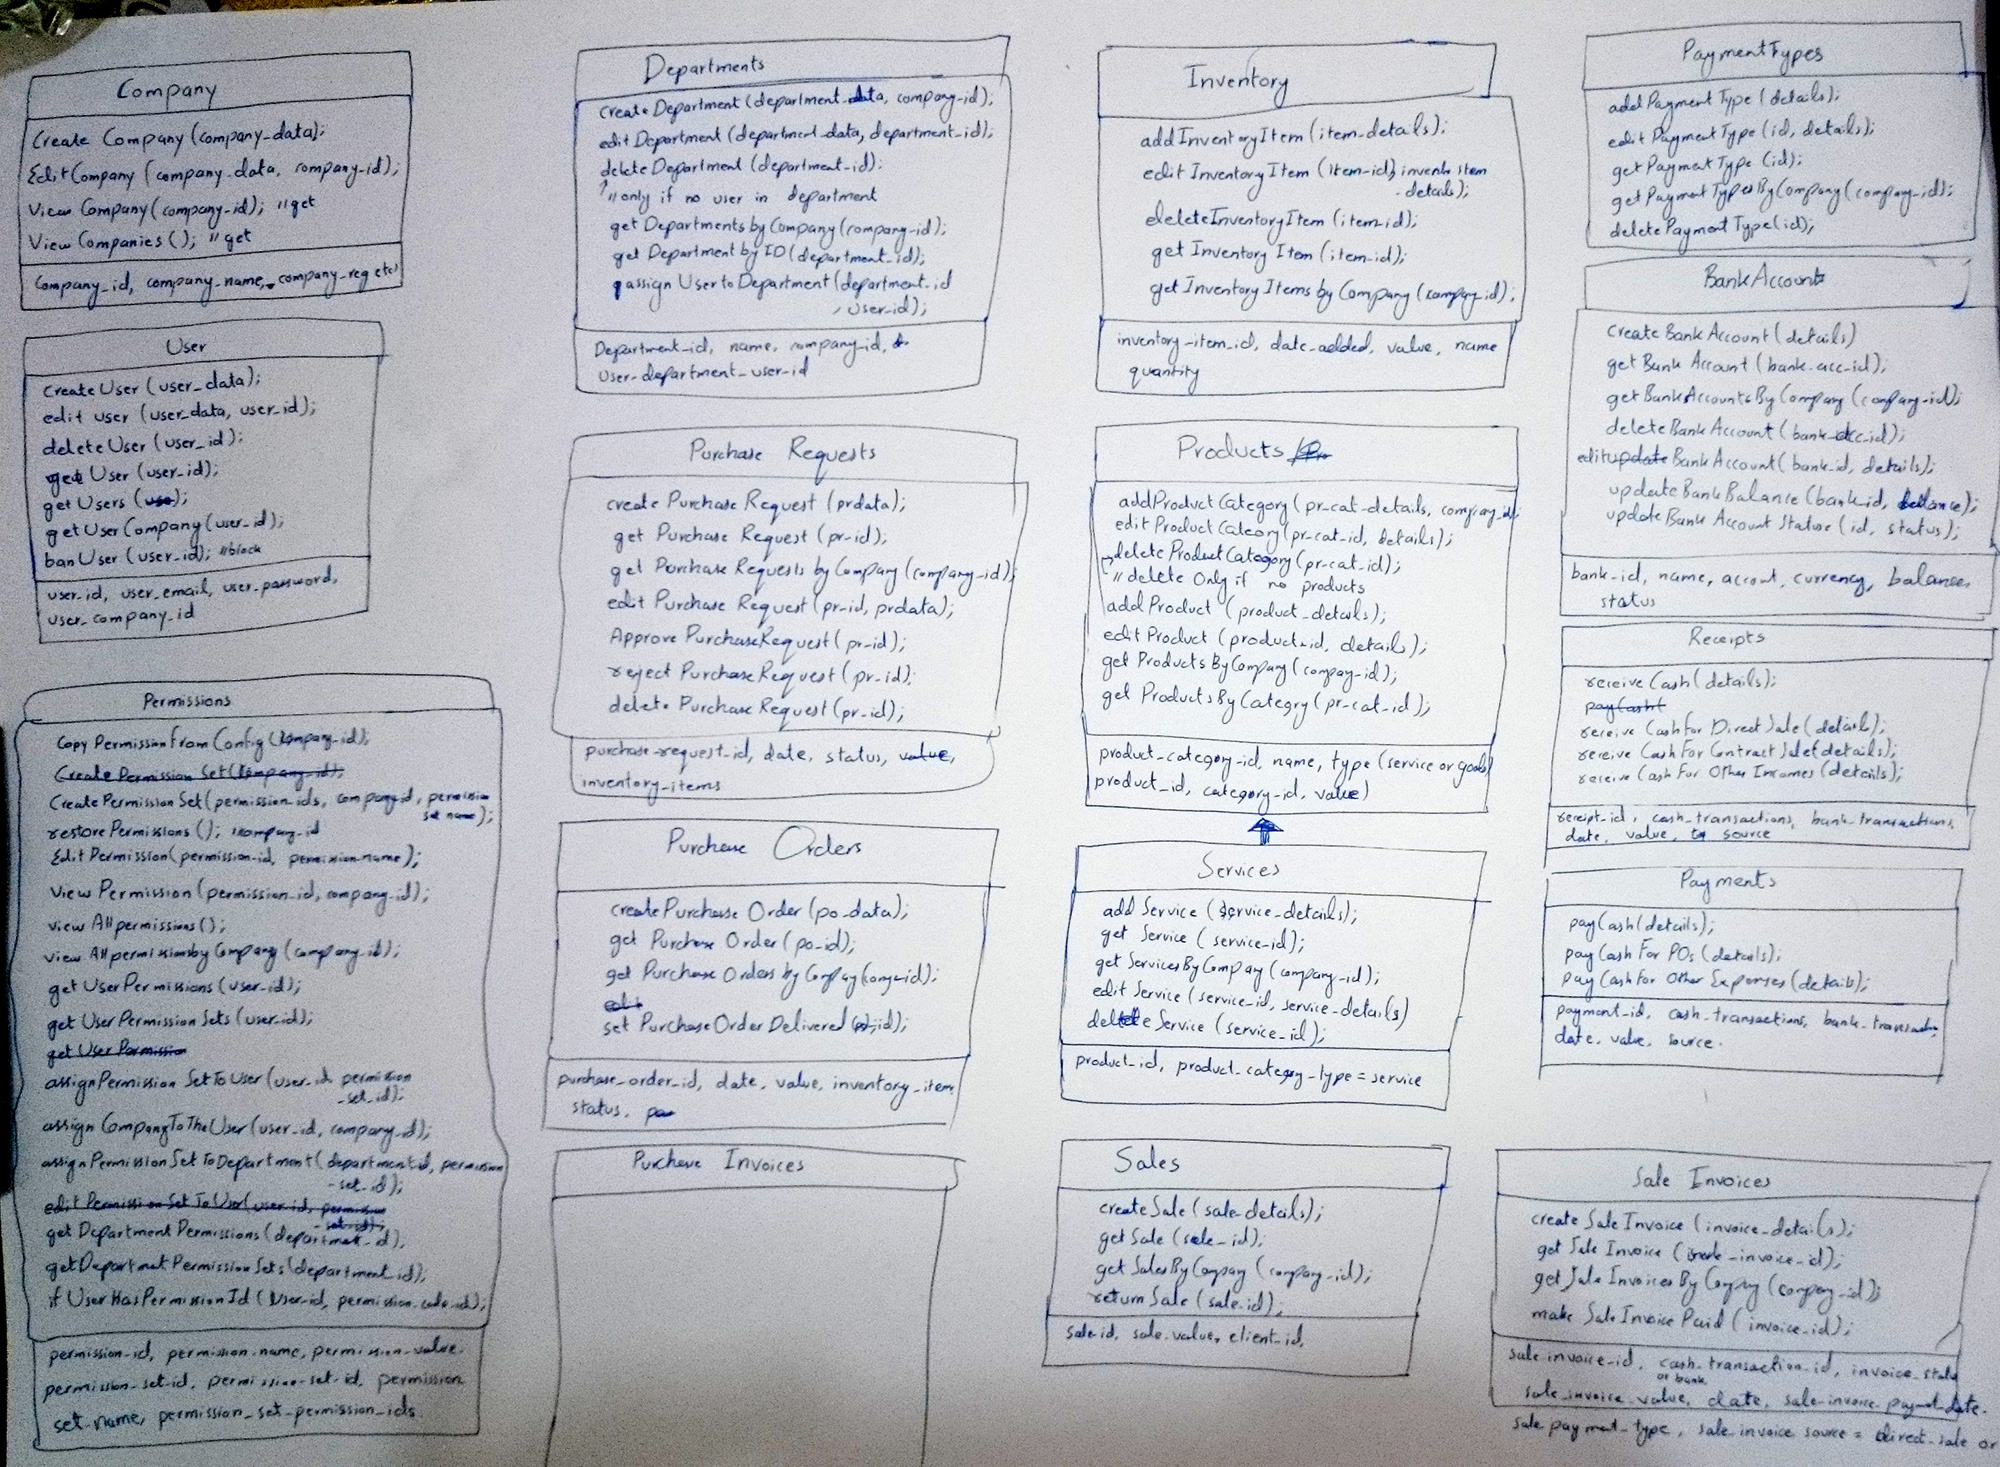 Company
Create Company (company_data);
Edit Company (company_data, company_id);
View Company (company_id); // get
View Companies (); // get
Company_id, company_name, company_reg etc)
User
create User (user_data);
edit user (user_data, user_id);
delete User (user_id);
get User (user_id);
get Users ();
get User Company (user_id);
ban User (user_id); // block
user_id, user_email, user_password,
user_company_id
Permissions
Copy Permission from Config (company_id);
Create Permission Set (company_id);
Create Permission Set (permission_ids, company_id, permission
set name);
restore Permissions (); company_id
Edit Permission (permission_id, permission_name);
view Permission (permission_id, company_id);
view All permissions ();
view All permissions by Company (company_id);
get User Permissions (user_id);
get User Permission Sets (user_id);
get User Permission
assign Permission Set To User (user_id, permission
_set_id);
assign Company To The User (user_id, company_id);
assign Permission Set To Department (department_id, permission
_set_id);
edit Permission Set To User (user_id, permission
_set_id);
get Department Permissions (department_id);
get Departmet Permission Sets (department_id);
if User Has Permission Id (User_id, permission_code_id);
permission_id, permission_name, permission_value.
permission_set_id, permission_set_id, permission
set_name, permission_set_permission_ids
Departments
create Department (department_data, company_id);
edit Department (department_data, department_id);
delete Department (department_id);
// only if no user in department
get Departments by Company (company_id);
get Department by ID (department_id);
assign User to Department (department_id
, user_id);
Department_id, name, company_id,
User_department_user_id
Purchase Requests
create Purchase Request (prdata);
get Purchase Request (pr_id);
get Purchase Requests by Company (company_id);
edit Purchase Request (pr_id, prdata);
Approve Purchase Request (pr_id);
reject Purchase Request (pr_id);
delete Purchase Request (pr_id);
purchase_request_id, date, status, value,
inventory_items
Purchase Orders
create Purchase Order (po_data);
get Purchase Order (po_id);
get Purchase Orders by Company
edit
set Purchase Order Delivered
purchase_order_id, date, value, inventory_item
status,
Purchase Invoices
Inventory
add Inventory Item (item_details);
edit Inventory Item (item_id, item
details);
delete Inventory Item (item_id);
get Inventory Item (item_id);
get Inventory Items by Company (company_id);
inventory_item_id, date_added, value, name
quantity
Products
add Product Category (pr_cat_details, company_id
edit Product Category (pr_cat_id, details);
delete Product Category (pr_cat_id);
// delete Only if no products
add Product (product_details);
edit Product (product_id, details);
get Products By Company (company_id);
get Products By Category (pr_cat_id);
product_category_id, name, type (service or goods)
product_id, category_id, value)
Services
add Service (service_details);
get Service (service_id);
get Services By Company (company_id);
edit Service (service_id, service_details)
delete Service (service_id);
product_id, product_category_type = service
Sales
create Sale (sale_details);
get Sale (sale_id);
get Sales By Company (company_id);
return Sale (sale_id);
Sale_id, sale_value, client_id,
Payment Types
add Payment Type (details);
edit Payment Type (id, details);
get Payment Type (id);
get Payment Types By Company (company_id);
delete Payment Type (id);
Bank Accounts
create Bank Account (details)
get Bank Account (bank_acc_id);
get Bank Accounts By Company (company_id);
delete Bank Account (bank_acc_id);
edit update Bank Account (bank_id, details);
update Bank Balance (bank_id, balance);
update Bank Account Status (id, status);
bank_id, name, account, currency, balances
status
Receipts
receive Cash (details);
pay Cash (
receive Cash For Direct Sale (details);
receive Cash For Contract Sale (details);
receive Cash For Other Incomes (details);
receipt_id, cash_transactions, bank_transactions,
date, value, source
Payments
pay Cash (details);
pay Cash For POs (details);
pay Cash For Other Expenses (details);
payment_id, cash_transactions, bank_transaction,
date, value, source.
Sale Invoices
create Sale Invoice (invoice_details);
get Sale Invoice (invoice_id);
get Sale Invoices By Company (company_id);
make Sale Invoice Paid (invoice_id);
sale_invoice_id, cash_transaction_id, invoice_status
or bank
sale_invoice_value, date, sale_invoice_paymet_date.
sale payment_type, sale_invoice source = direct_sale or